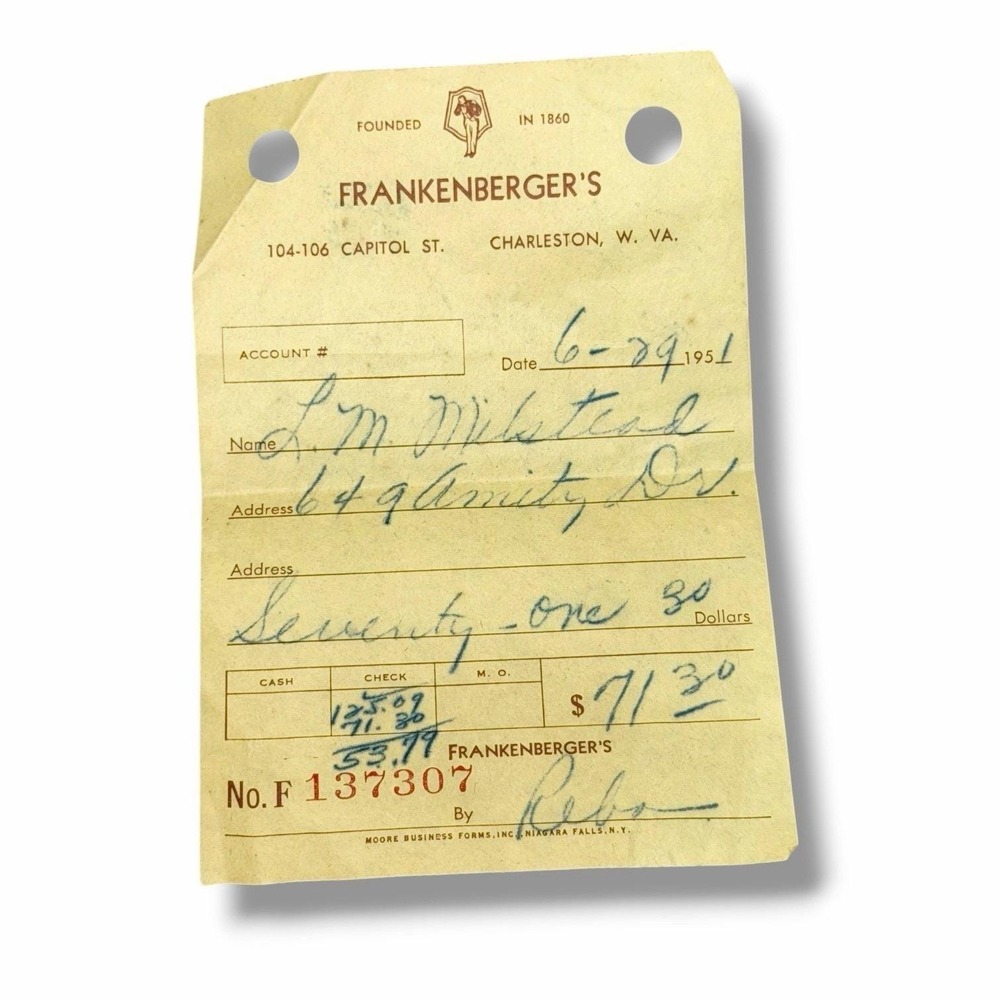 FOUNDED IN 1860
FRANKENBERGER'S
104-106 CAPITOL ST. CHARLESTON, W. VA.
ACCOUNT #
Date 6-29 1951
Name L. M. Milstead
Address 649 Amity Dr.
Address
Seventy-one 30 Dollars
CASH CHECK M. O.
125.09
71.30
53.79
$ 71 30
FRANKENBERGER'S
No. F 137307
By Reba
MOORE BUSINESS FORMS, INC., NIAGARA FALLS, N.Y.